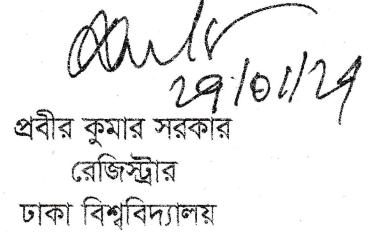 29/01/24
প্রবীর কুমার সরকার
রেজিস্ট্রার
ঢাকা বিশ্ববিদ্যালয়